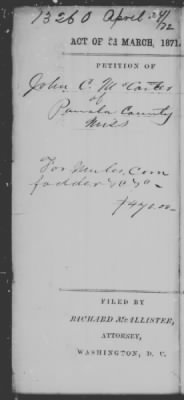 13260 April 24/72
ACT OF 3d MARCH, 1871.
PETITION OF
John C. McCarter
of
Panola County
Miss
For Mules, Corn
fodder &c &c -
$490.00 -
FILED BY
RICHARD McALLISTER,
ATTORNEY,
WASHINGTON, D. C.